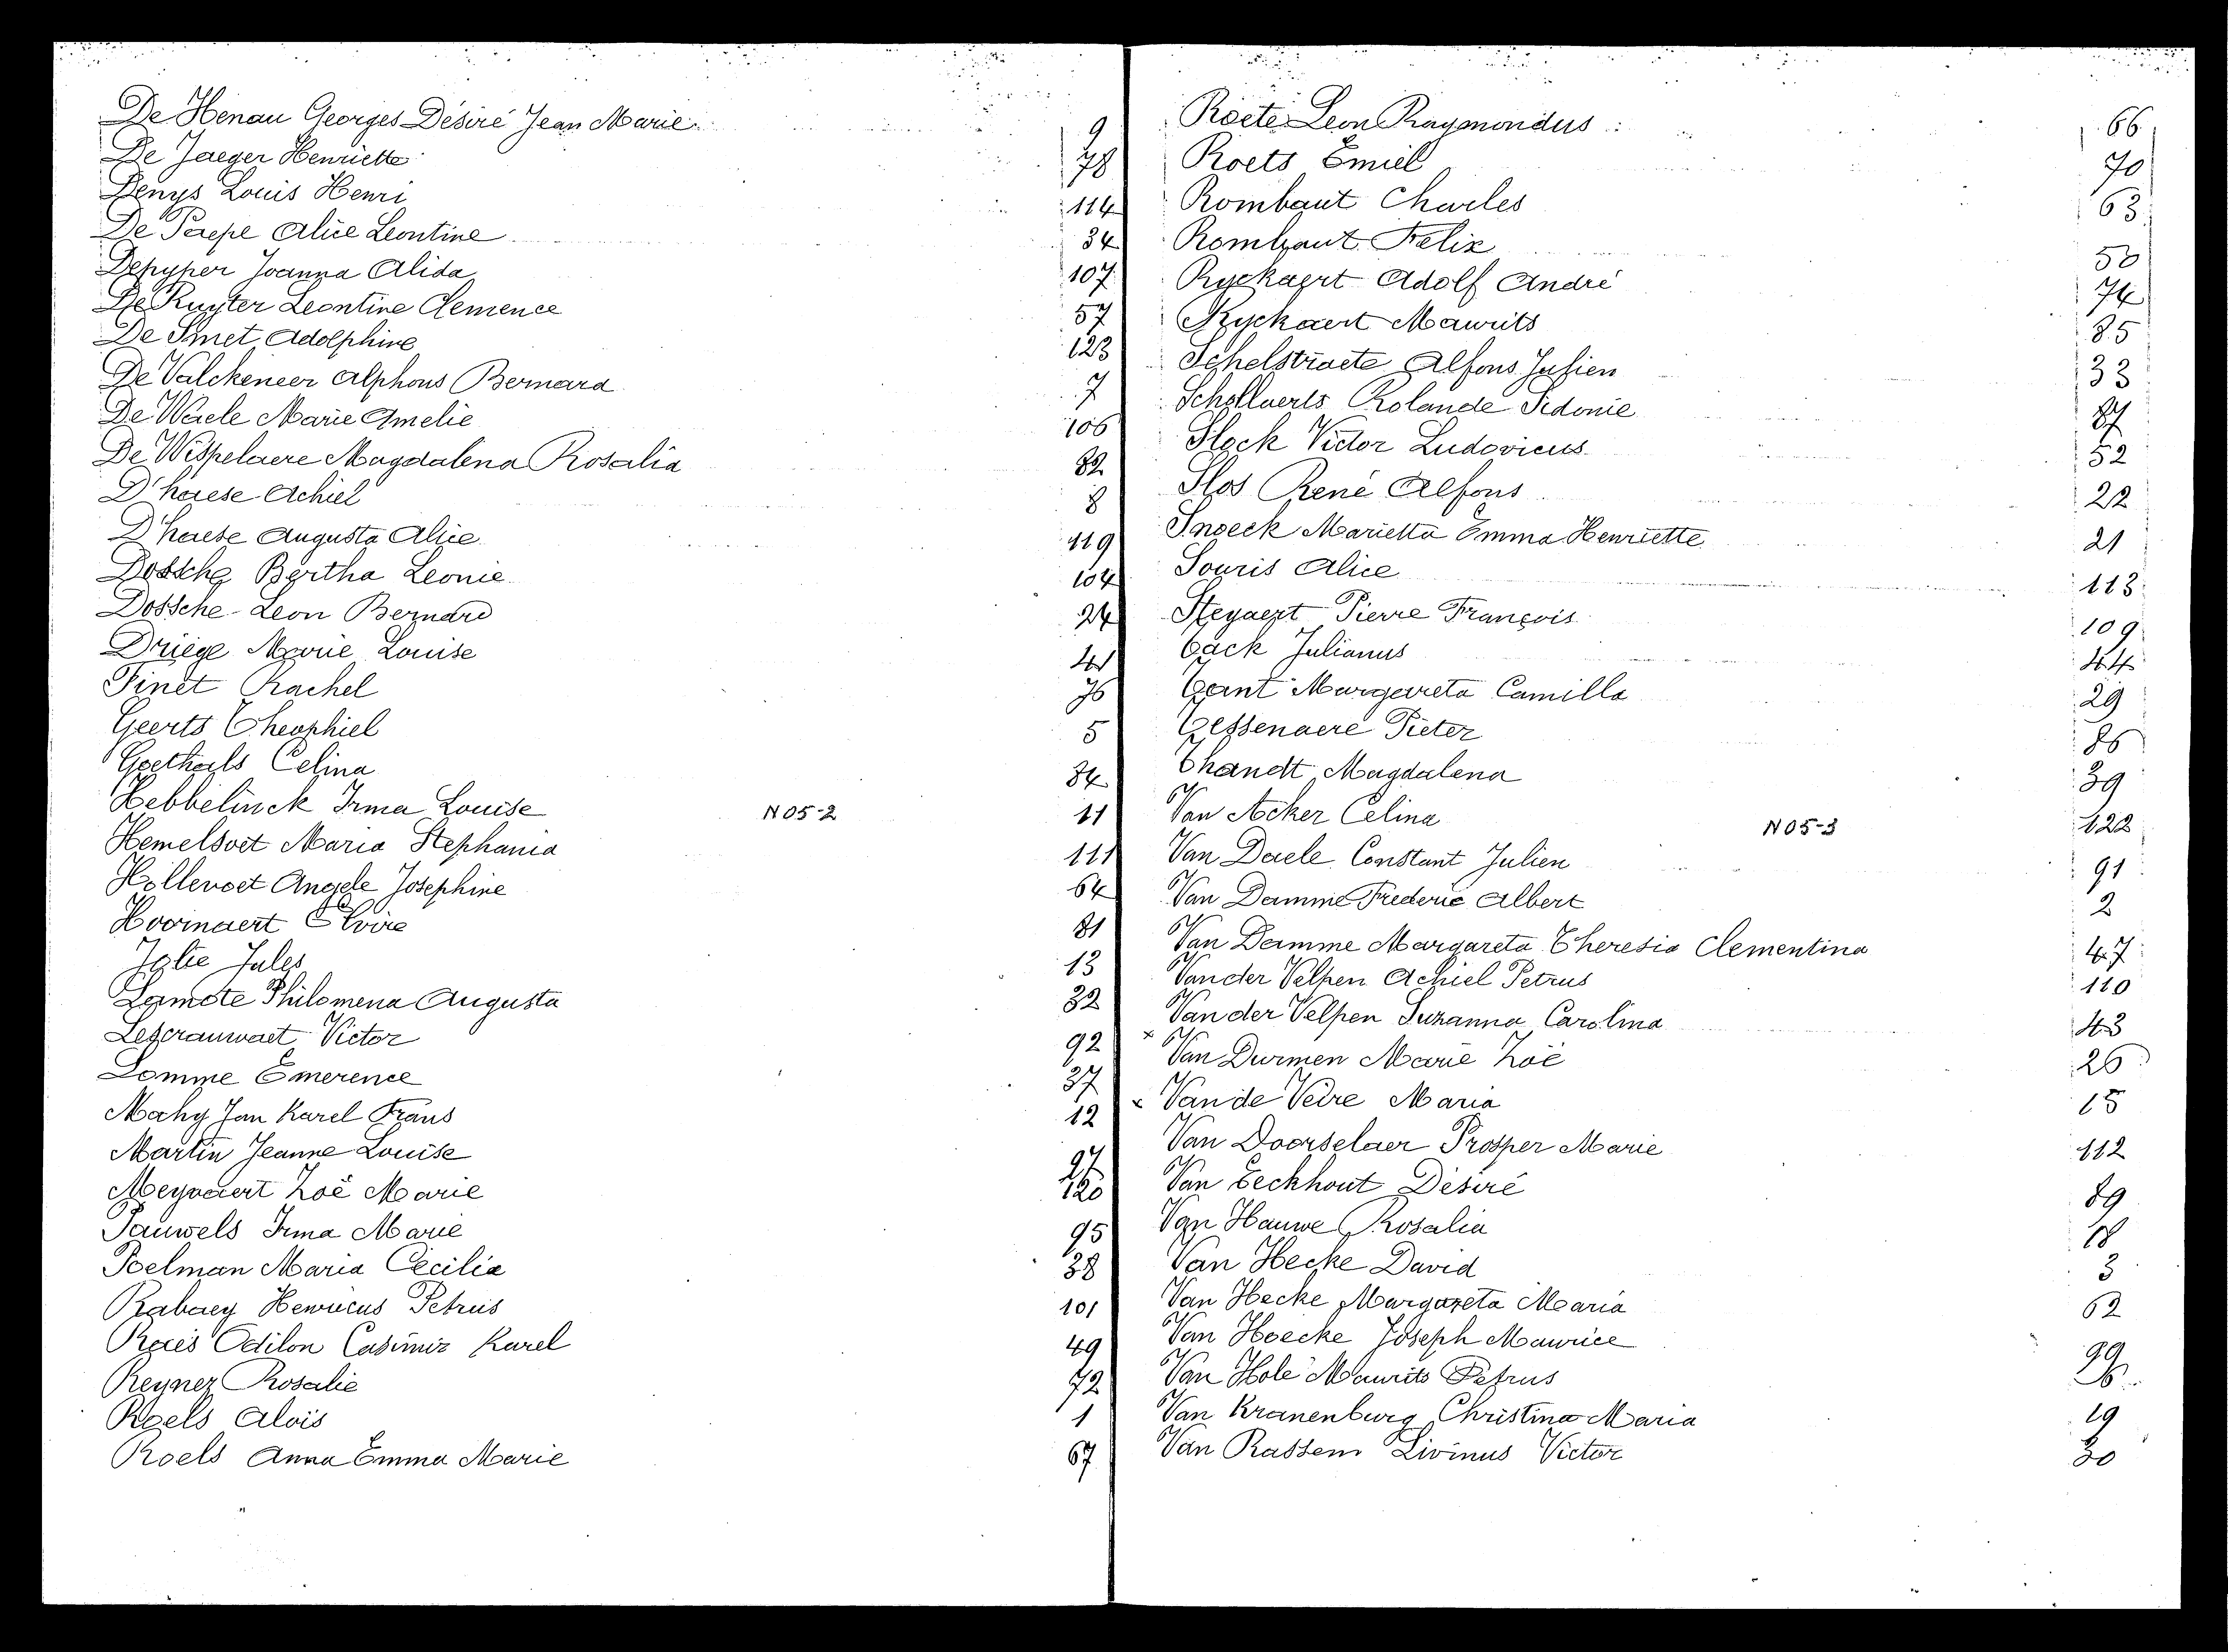 De Henau Georges Désiré Jean Marie 9
De Jaeger Henriette 78
Denys Louis Henri 114
De Paepe Alice Leontine 34
Depyper Joanna Alida 107
De Ruyter Leontine Clemence 57
De Smet Adolphine 123
De Valckeneer Alphons Bernard 7
De Waele Marie Amelie 106
De Wispelaere Magdalena Rosalia 82
D'haese Achiel 8
D'haese Augusta Alice 119
Dossche Bertha Leonie 104
Dossche Leon Bernard 24
Driege Marie Louise 41
Finet Rachel 76
Geerts Theophiel 5
Goethals Celina 84
Hebbelinck Irma Louise N05-2 11
Hemelsoet Maria Stephania 111
Hollevoet Angele Josephine 64
Hoornaert Elvire 81
Iglie Jules 13
Lamote Philomena Augusta 32
Lescrauwaet Victor 92
Lomme Emerence 37
Mahy Jan Karel Frans 12
Martin Jeanne Louise 97
Meyvaert Zoë Marie 120
Pauwels Irma Marie 95
Poelman Maria Cecilia 38
Rabaey Henricus Petrus 101
Raes Odilon Casimir Karel 49
Reyner Rosalie 72
Roels Alois 1
Roels Anna Emma Marie 67
Roete Leon Raymondus 66
Roets Emiel 70
Rombaut Charles 63
Rombaut Felix 58
Ryckaert Adolf André 74
Ryckaert Maurits 85
Schelstraete Alfons Julien 33
Schollaerts Rolande Sidonie 87
Slock Victor Ludovicus 52
Slos René Alfons 22
Snoeck Marietta Emma Henriette 21
Souris Alice 113
Steyaert Pierre François 109
Tack Julianus 44
Tant Margareta Camilla 29
Tessenaere Pieter 86
Thandt Magdalena 39
Van Acker Celina N05-3 122
Van Daele Constant Julien 91
Van Damme Frederic Albert 2
Van Damme Margareta Theresia Clementina 47
Vander Velpen Achiel Petrus 110
Van der Velpen Suzanna Carolina 43
x Van Durmen Marie Zoë 26
x Van de Veire Maria 15
Van Doorselaer Prosper Marie 112
Van Eeckhout Désiré 89
Van Hauwe Rosalia 18
Van Hecke David 3
Van Hecke Margareta Maria 62
Van Hoecke Joseph Maurice 99
Van Hole Maurits Petrus
Van Kranenburg Christina Maria 19
Van Rassem Livinus Victor 30